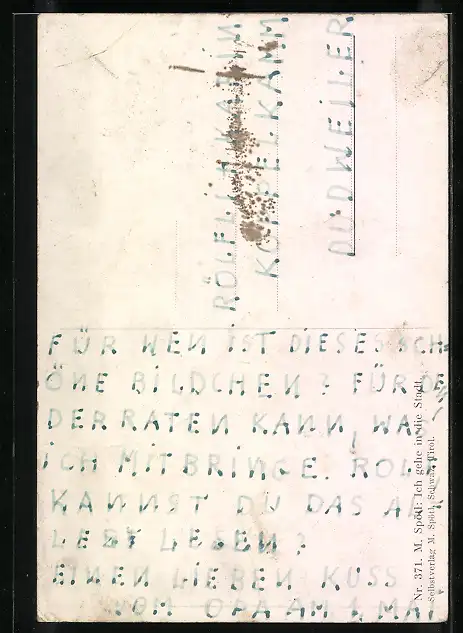 FÜR WEN IST DIESES SCH
ÖNE BILDCHEN? FÜR DEN
DER RATEN KANN, WAS
ICH MITBRINGE. ROLF
KANNST DU DAS AL
LES LESEN?
EINEN LIEBEN KUSS
VOM OPA AM 1. MAI
DUDWEILER
Nr. 371. M. Spötl: Ich gehe in die Stadt
Selbstverlag M. Spötl, Schwaz, Tirol.